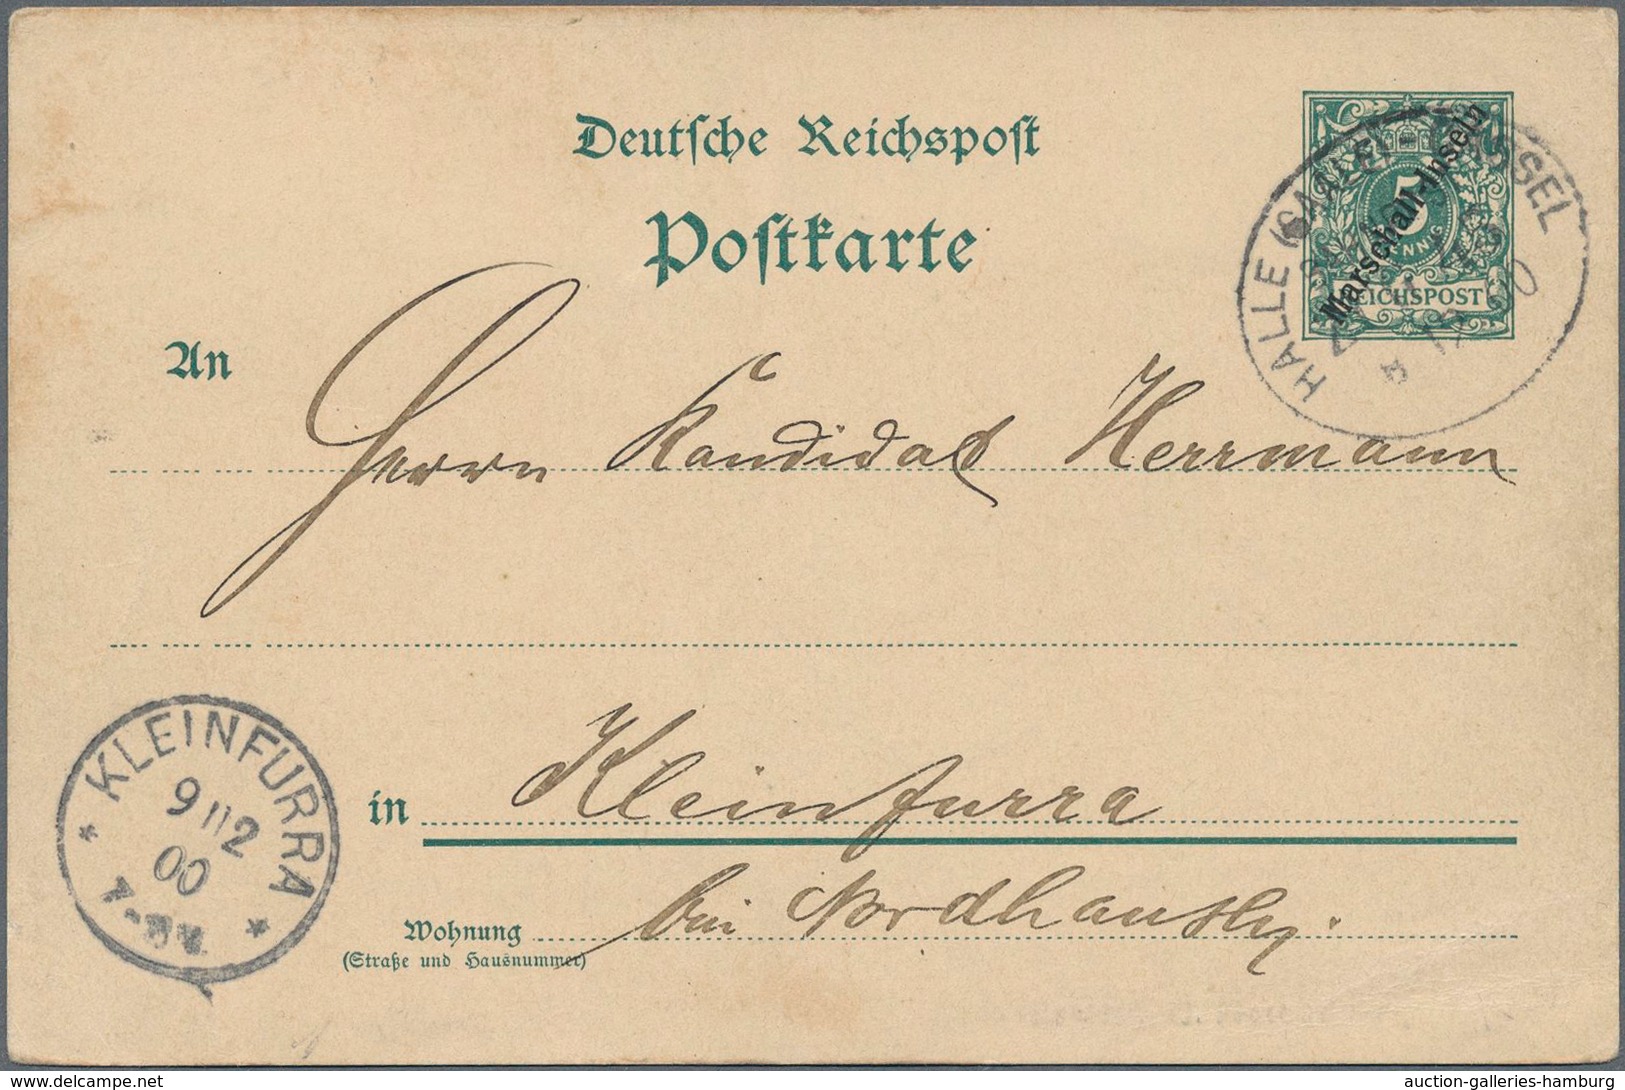 Deutsche Reichspost
Postkarte
5
REICHSPOST
Marschall-Inseln
HALLE (SAALE) - CASSEL
An Herrn Kandidat Herrmann
in Kleinfurra
Wohnung bei Nordhausen.
(Straße und Hausnummer)
KLEINFURRA
9 2
00
delcampe.net
auction-galleries-hamburg